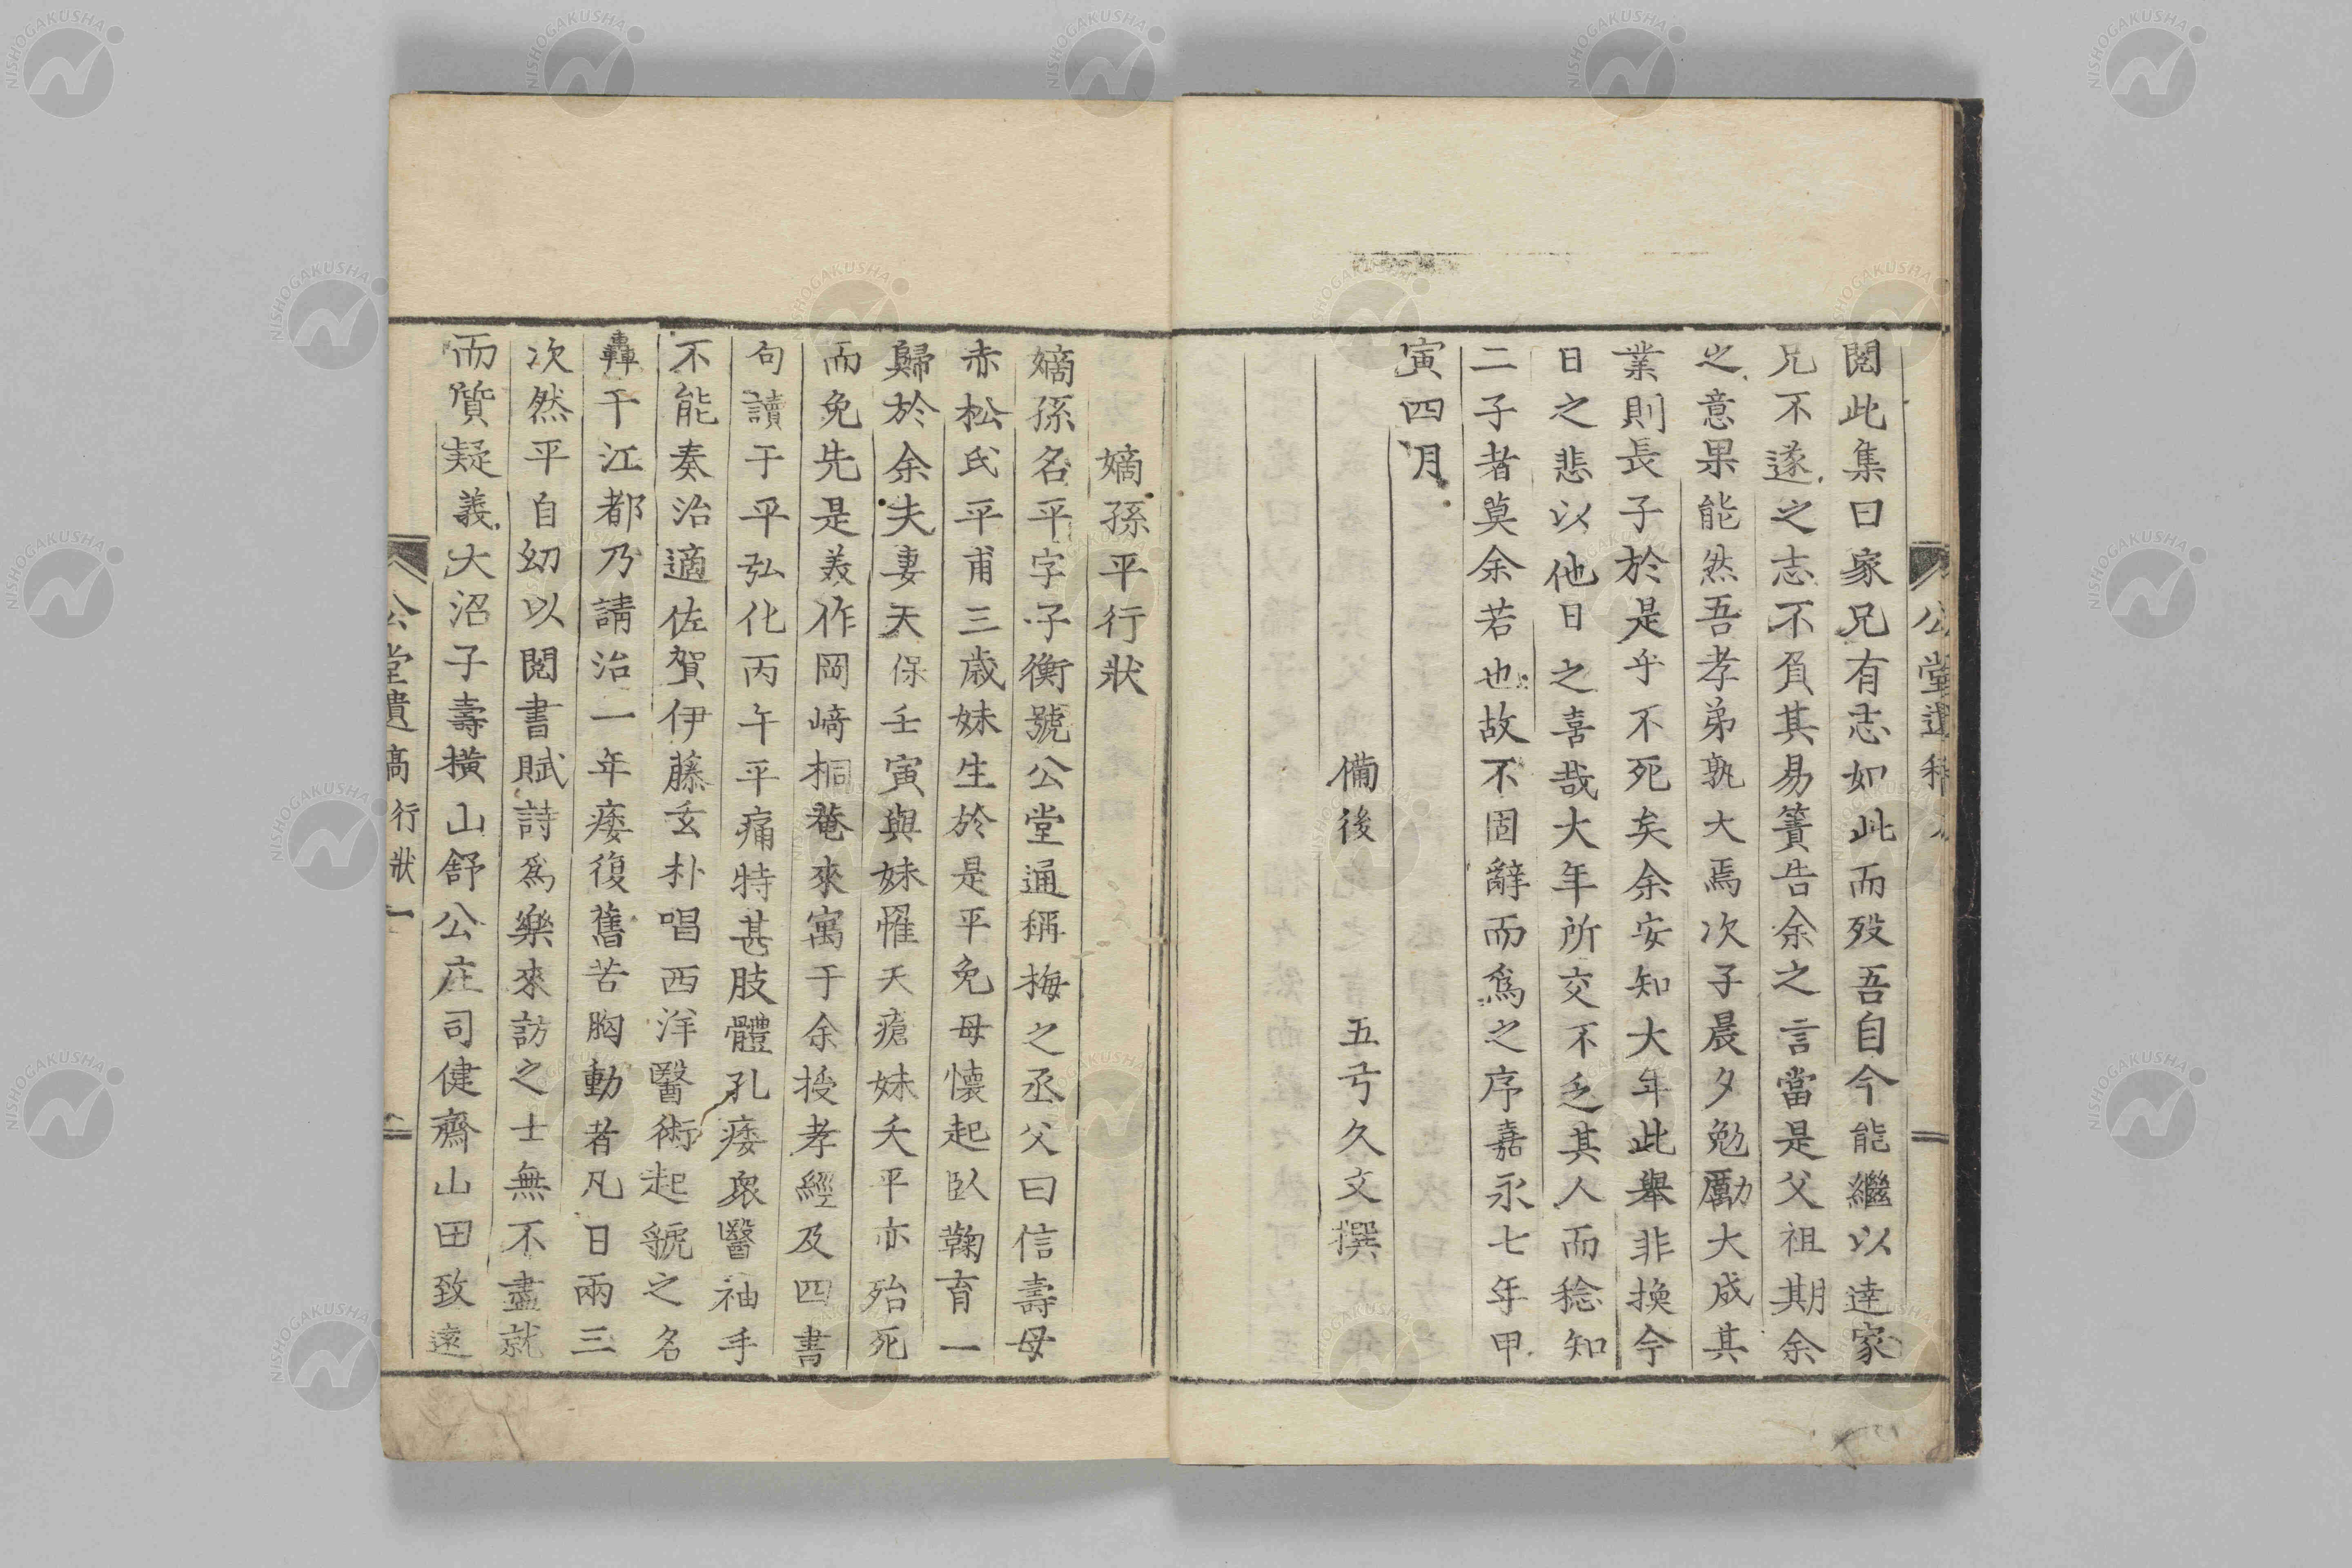 閲此集曰家兄有志如此而歿吾自今能繼以達家
兄不遂之志不負其易簀告余之言當是父祖期余
之意果能然吾孝弟孰大焉次子晨夕勉勵大成其
業則長子於是乎不死矣余安知大年此舉非換今
日之悲以他日之喜哉大年所交不乏其人而稔知
二子者莫余若也故不固辭而爲之序嘉永七年甲
寅四月
備後　五弓久文撰
嫡孫平行狀
嫡孫名平字子衡號公堂通稱梅之丞父曰信壽母
赤松氏平甫三歳妹生於是平免母懷起臥鞠育一
歸於余夫妻天保壬寅與妹罹天瘡妹夭平亦殆死
而免先是美作岡﨑桐菴來寓于余授孝經及四書
句讀于平弘化丙午平痛特甚肢體孔痿衆醫袖手
不能奏治適佐賀伊藤玄朴唱西洋醫術起號之名
轟于江都乃請治一年痿復舊苦胸動者凡日兩三
次然平自幼以閲書賦詩爲樂來訪之士無不盡就
而質疑義大沼子壽橫山舒公庄司健齋山田致遠
公堂遺稿 行狀 一
NISHOGAKUSHA